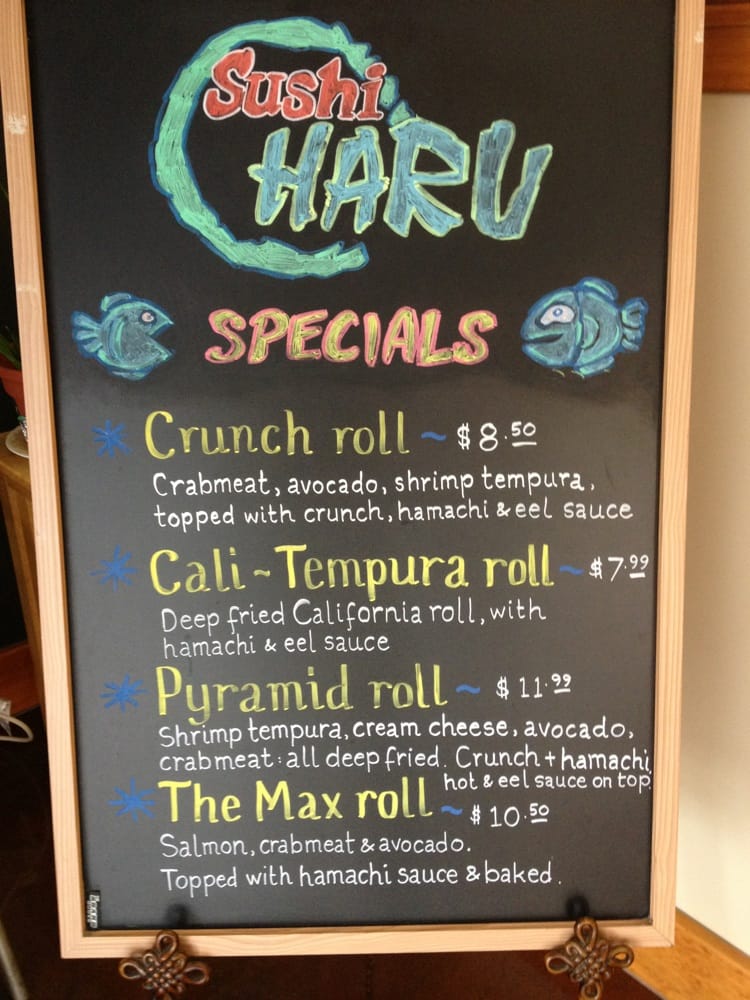 Sushi
HARU
SPECIALS
* Crunch roll ~ $8.50
Crabmeat, avocado, shrimp tempura,
topped with crunch, hamachi & eel sauce
* Cali~Tempura roll ~ $7.99
Deep fried California roll, with
hamachi & eel sauce
* Pyramid roll ~ $11.99
Shrimp tempura, cream cheese, avocado,
crabmeat: all deep fried. Crunch + hamachi,
hot & eel sauce on top.
* The Max roll ~ $10.50
Salmon, crabmeat & avocado.
Topped with hamachi sauce & baked.